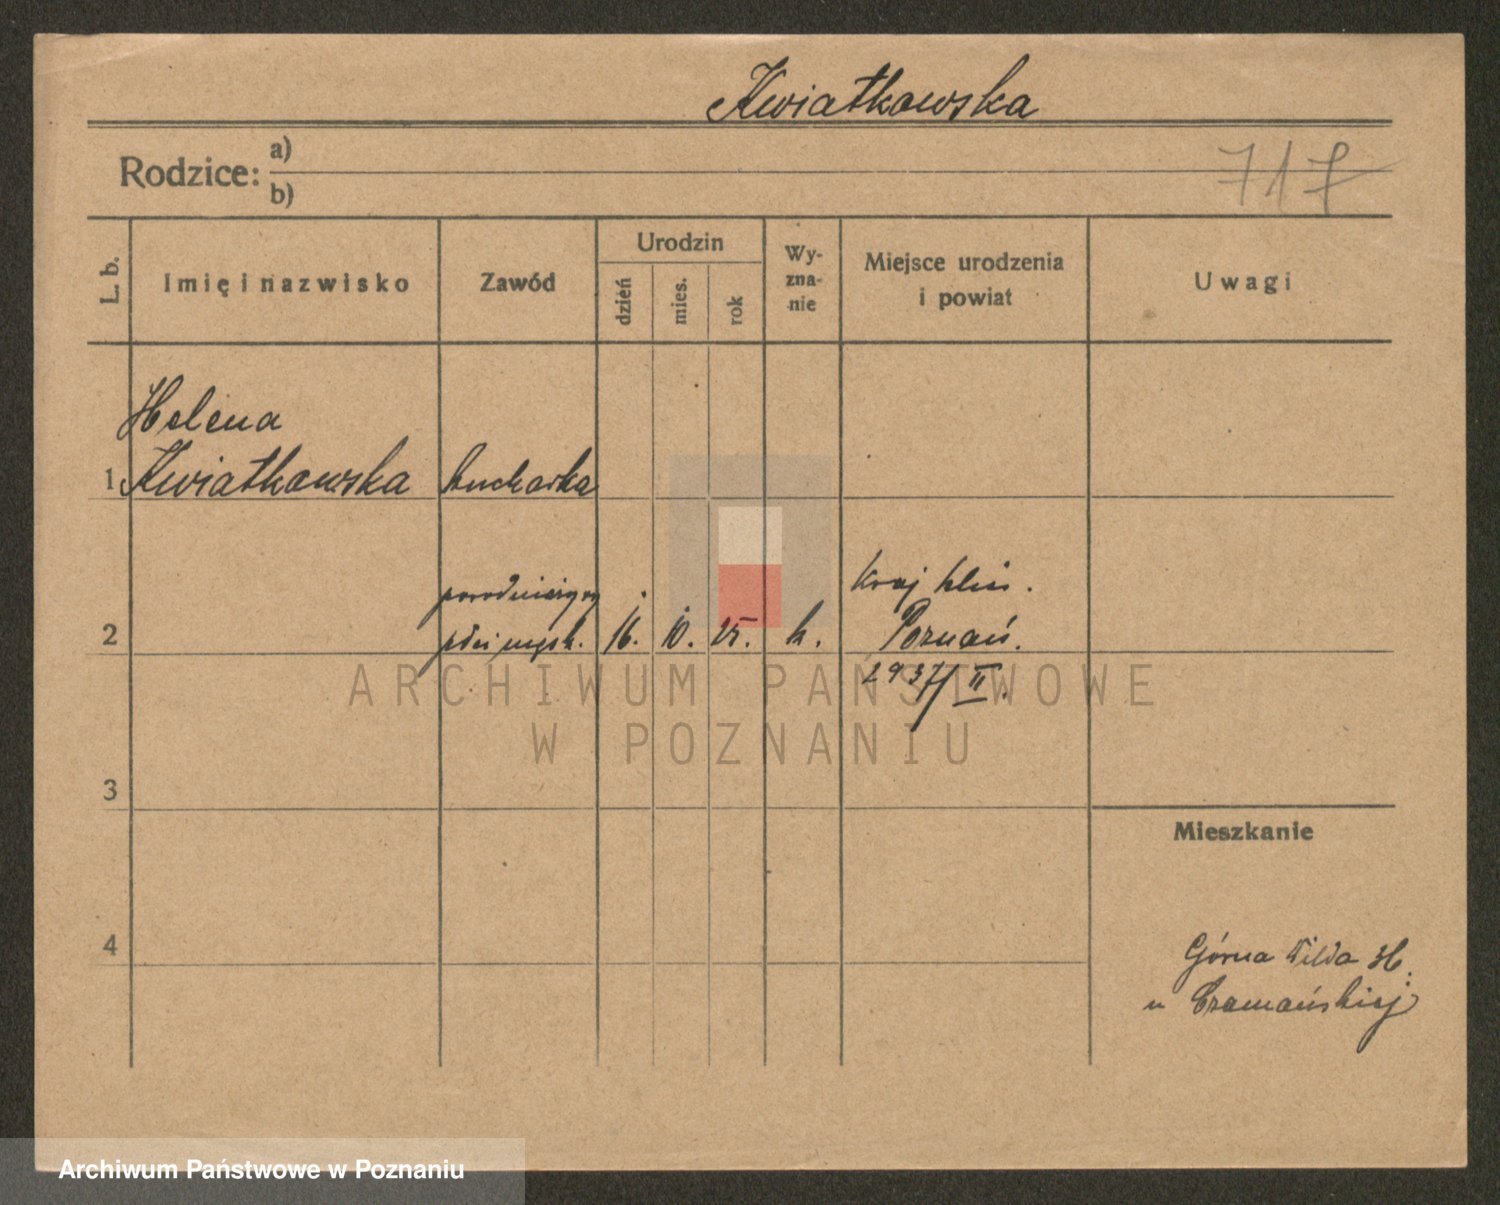 Kwiatkowska
Rodzice: a)
b)
717
L. b.
Imię i nazwisko
Zawód
Urodzin
dzień
mies.
rok
Wy-
zna-
nie
Miejsce urodzenia
i powiat
Uwagi
Helena
1 Kwiatkowska kucharka
kraj klin.
2 płci męsk. 16. 10. 25. k. Poznań.
2937/II.
3
Mieszkanie
4
Górna Wilda 36.
u
ARCHIWUM PAŃSTWOWE
W POZNANIU
Archiwum Państwowe w Poznaniu